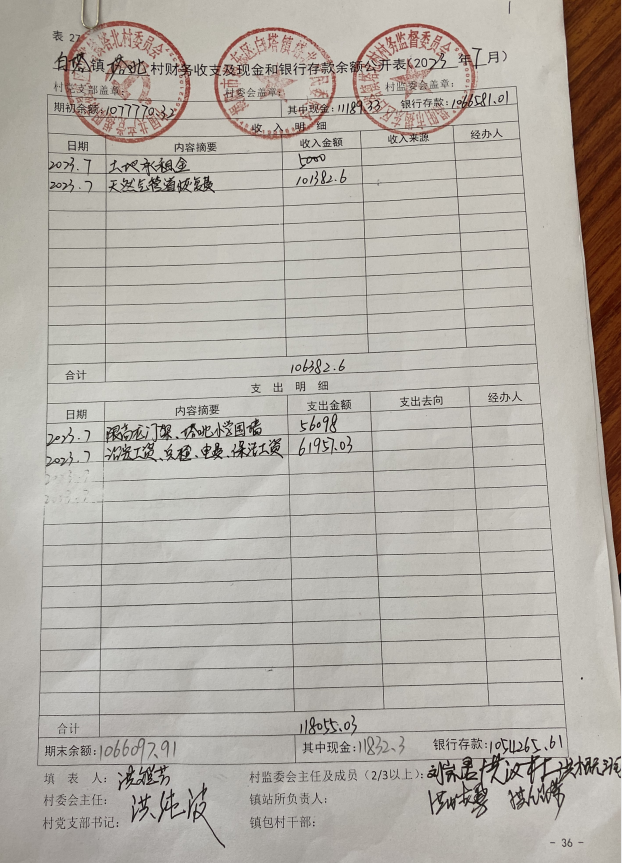 表 27
白塔镇塔北村财务收支及现金和银行存款余额公开表(2023年7月)
村党支部盖章: 村委会盖章: 村监委会盖章:
期初余额:1077770.32 其中现金:11189.33 银行存款:1066581.01
收 入 明 细
日期 内容摘要 收入金额 收入来源 经办人
2023.7 土地承租金 5000
2023.7 天然气管道恢复费 101382.6
合计 106382.6
支 出 明 细
日期 内容摘要 支出金额 支出去向 经办人
2023.7 限高龙门架、塔北小学围墙 56098
2023.7 工资、电费、保洁工资 61957.03
合计 118055.03
期末余额:1066097.91 其中现金:11832.3 银行存款:1054265.61
填 表 人: 村监委会主任及成员(2/3以上):
村委会主任: 镇站所负责人:
村党支部书记: 镇包村干部:
- 36 -